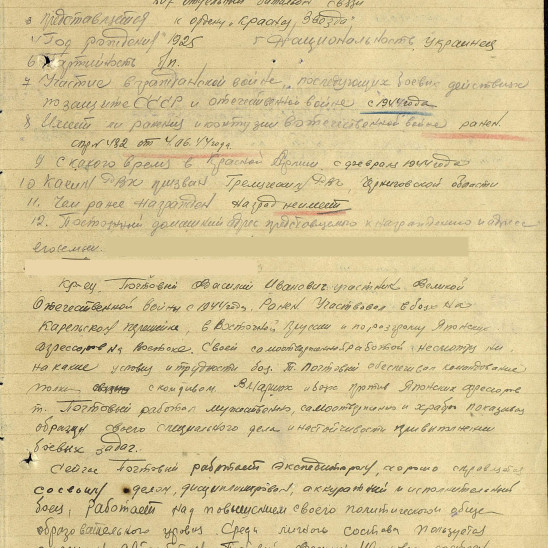 батальон связи
3 Представляется к ордену "Красная Звезда"
4 Год рождения 1925 5 Национальность украинец
6 Партийность б/п.
7 Участие в гражданской войне, последующих боевых действиях
по защите СССР и отечественной войне с 1944 года
8 Имеет ли ранения и контузии в отечественной войне ранен
482 от 4.06.44 года.
9 С какого время в Красной Армии с февраля 1944 года
10 Каким РВК призван РВК Черниговской области
11. Чем ранее награжден наград неимеет
12. Постоянный домашний адрес представляемого к награждению и адрес
его семьи.
Кр-ец Поставный Василий Иванович участник Великой
Отечественной войны с 1944 году. Ранен Участвовал в боях на
Карельском перешейке, в Восточной Пруссии и по разгрому Японских
агрессоров на Востоке. Своей самоотверженной работой несмотря ни
на какие условия и трудности т. обеспечил командование
В маршах и боях против Японских агрессоров
т. работал мужественно, самоотверженно и храбро показывал
образцы своего специального дела и настойчивости при выполнении
боевых задач.
Сейчас работает экспедитором, хорошо справляется
со своим делом, дисциплинирован, аккуратный и исполнительный
боец, работает над повышением своего политического и обще
образовательного уровня. Среди личного состава пользуется